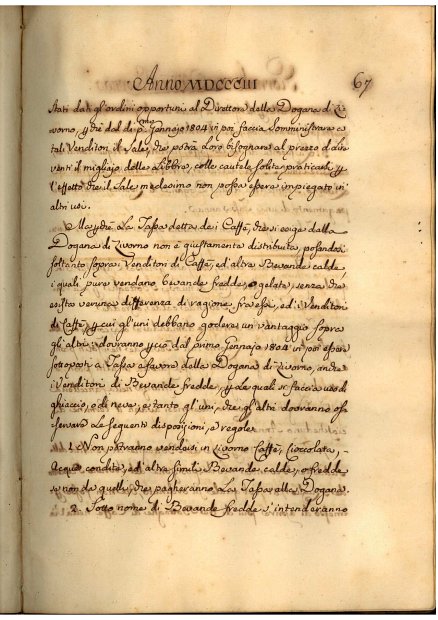 Anno MDCCCIII
67
stati dati gl'ordini opportuni al Direttore della Dogana di Li-
vorno, perchè dal dì p.mo Gennajo 1804 in poi faccia somministrare a
tali Venditori il Sale, che potrà loro bisognare al prezzo di
venti il migliajo delle Libbre, colle cautele solite praticarsi per
l'effetto che il Sale medesimo non possa essere impiegato in
altri usi.
Ma perchè La Tassa detta dei Caffè, che si esige dalla
Dogana di Livorno non è giustamente distribuita, posandosi
soltanto sopra i Venditori di Caffè, ed altre Bevande calde,
i quali pure vendano bevande fredde, o gelate, senza che
esista veruna differenza di ragione fra essi, ed i Venditori
di Caffè, per cui gl'uni debbano godere un vantaggio sopra
gli altri: dovranno perciò dal primo Gennajo 1804 in poi essere
sottoposti a Tassa a favore della Dogana di Livorno, anche
i Venditori di Bevande fredde, per le quali si faccia uso di
ghiaccio, o di neve, e tanto gl'uni, che gli altri dovranno os-
servare Le seguenti disposizioni, e regole.
1. Non potranno vendersi in Livorno Caffè, Cioccolata,
Acque condite, ed altre simili Bevande calde, o fredde
se non da quelli, che pagheranno La Tassa alla Dogana.
2. Sotto nome di Bevande fredde s'intenderanno